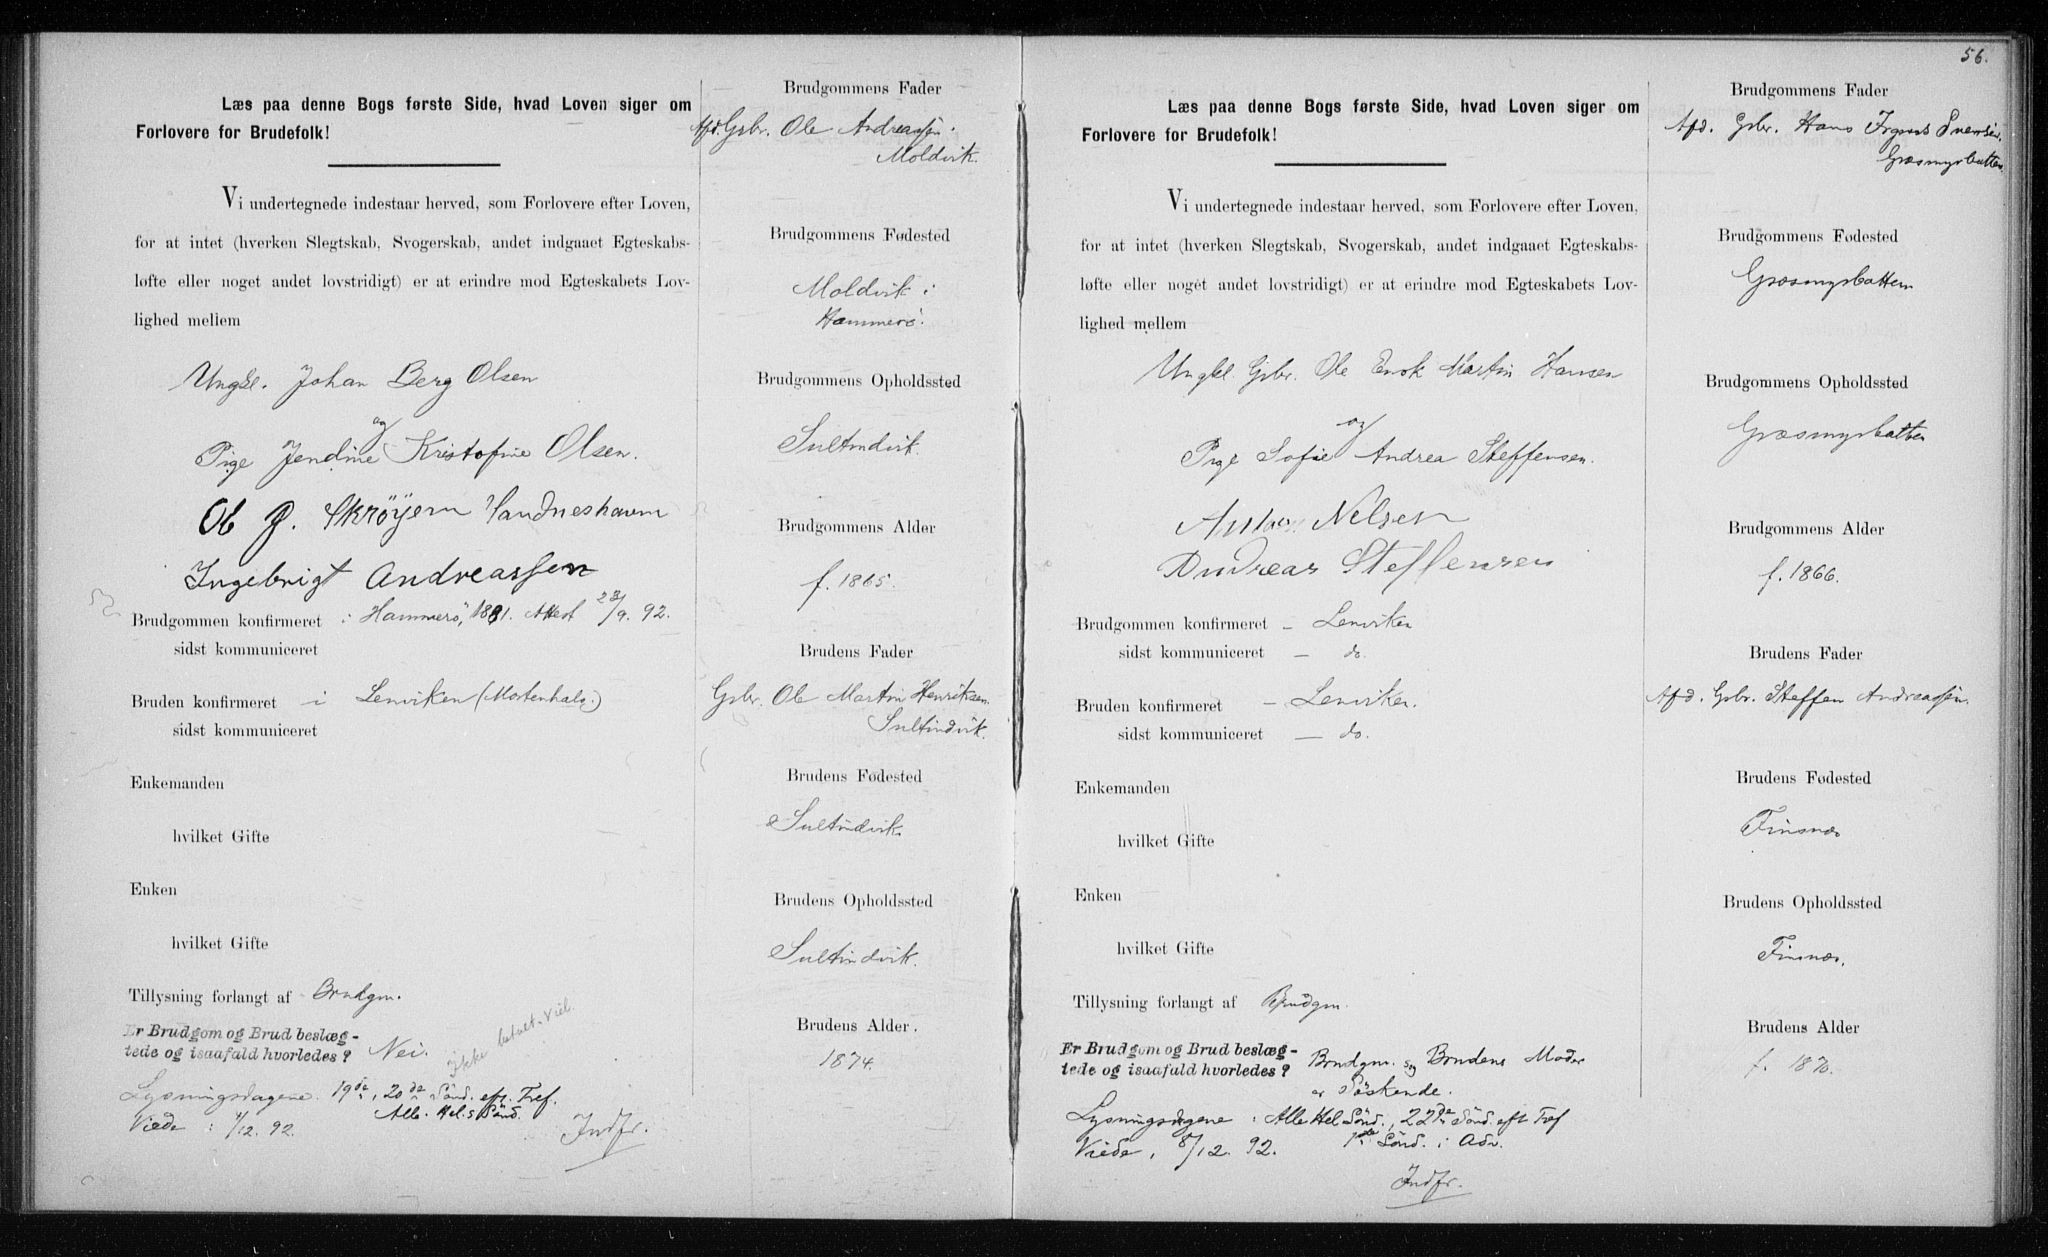 Læs paa denne Bogs første Side, hvad Loven siger om
Forlovere for Brudefolk!
Vi undertegnede indestaar herved, som Forlovere efter Loven,
for at intet (hverken Slegtskab, Svogerskab, andet indgaaet Egteskabs-
løfte eller noget andet lovstridigt) er at erindre mod Egteskabets Lov-
lighed mellem
Ungkl. Johan Berg Olsen
og
Pige Jendine Kristofine Olsen.
Ole P. Skrøyern Sandneshavn
Ingebrigt Andreassen
Brudgommen konfirmeret i Hammerö, 1881. Attest 28/9. 92.
sidst kommuniceret
Bruden konfirmeret — i Lenviken (Mortenhals.)
sidst kommuniceret
Enkemanden
hvilket Gifte
Enken
hvilket Gifte
Tillysning forlangt af Brudgm.
Er Brudgom og Brud beslæg-
tede og isaafald hvorledes? Nei.
Ikke betalt. Viel.
Lysningsdagene. 19de, 20de Sönd. eft. Tref.
Alle. Hel.s Sönd.
Viede: 4/12. 92.
Indfr.
Brudgommens Fader
Afd. Gbr. Ole Andreassen.
Moldvik.
Brudgommens Fødested
Moldvik i
Hammerö.
Brudgommens Opholdssted
Sultindvik.
Brudgommens Alder
f. 1865.
Brudens Fader
Gbr. Ole Martin Henriksen
Sultindvik.
Brudens Fødested
Sultindvik
Brudens Opholdssted
Sultindvik.
Brudens Alder.
1874.
56.
Læs paa denne Bogs første Side, hvad Loven siger om
Forlovere for Brudefolk!
Vi undertegnede indestaar herved, som Forlovere efter Loven,
for at intet (hverken Slegtskab, Svogerskab, andet indgaaet Egteskabs-
løfte eller noget andet lovstridigt) er at erindre mod Egteskabets Lov-
lighed mellem
Ungkl. Gbr. Ole Enok Martin Hansen
og
Pige Sofie Andrea Steffensen.
Nelsen
Andreas Steffensen
Brudgommen konfirmeret — Lenviken
sidst kommuniceret — do.
Bruden konfirmeret — Lenviken.
sidst kommuniceret — do.
Enkemanden
hvilket Gifte
Enken
hvilket Gifte
Tillysning forlangt af Brudgm.
Er Brudgom og Brud beslæg-
tede og isaafald hvorledes? Brudgm. og Brudens Moder
er Söskende.
Lysningsdagene: Alle Hel Sönd., 22de Sönd. eft Tref
1ste Sönd. i Adv.
Viede, 8/12. 92.
Indfr.
Brudgommens Fader
Afd. Gbr. Hans Svensen.
Græsmyrbatten
Brudgommens Fødested
Græsmyrbatten
Brudgommens Opholdssted
Græsmyrbatten
Brudgommens Alder
f. 1866.
Brudens Fader
Afd. Gbr. Steffen Andreassen.
Brudens Fødested
Finsnæs
Brudens Opholdssted
Finsnæs.
Brudens Alder
f. 1870.